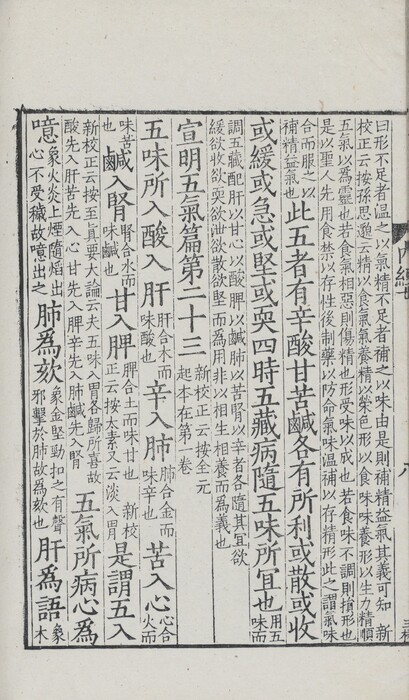 曰形不足者溫之以氣精不足者補之以味由是則補精益氣其義可知　新
校正云按孫思邈云精以食氣氣養精以榮色形以食味味養形以生力精順
五氣以為靈也若食氣相惡則傷精也形受味以成也若食味不調則損形也
是以聖人先用食禁以存性後制藥以防命氣味溫補以存精形此之謂氣味
合而服之以補精益氣也此五者有辛酸甘苦鹹各有所利或散或收
或緩或急或堅或耎四時五藏病隨五味所宜也用五味而
調五藏配肝以甘心以酸脾以鹹肺以苦腎以辛者各隨其宜欲
緩欲收欲耎欲泄欲散欲堅而為用非以相生相養而為義也
宣明五氣篇第二十三新校正云按全元起本在第一卷
五味所入酸入肝肝合木而味酸也辛入肺肺合金而味辛也苦入心心合火而
味苦也鹹入腎腎合水而味鹹也甘入脾脾合土而味甘也　新校正云按太素又云淡入胃是謂五入
新校正云按至真要大論云夫五味入胃各歸所喜故酸先入肝苦先入心甘先入脾辛先入肺鹹先入腎五氣所病心為
噫象火炎上煙隨焰出心不受穢故噫出之肺為欬象金堅勁扣之有聲邪擊於肺故為欬也肝為語象木